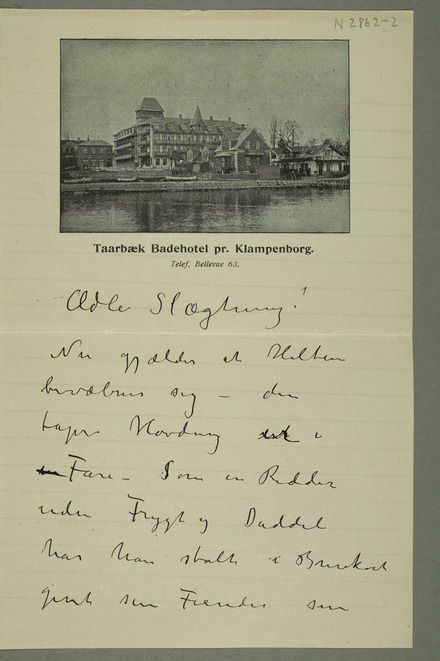 N 2862-2
Taarbæk Badehotel pr. Klampenborg.
Telef. Bellevue 63.
Ædle Slægtning!
Nu gjælder et Helten
bevæbner sig – den
tapre Høvding er i
Fare – Som en Ridder
uden Frygt og Daddel
har han staaet i
sin Fiender sin